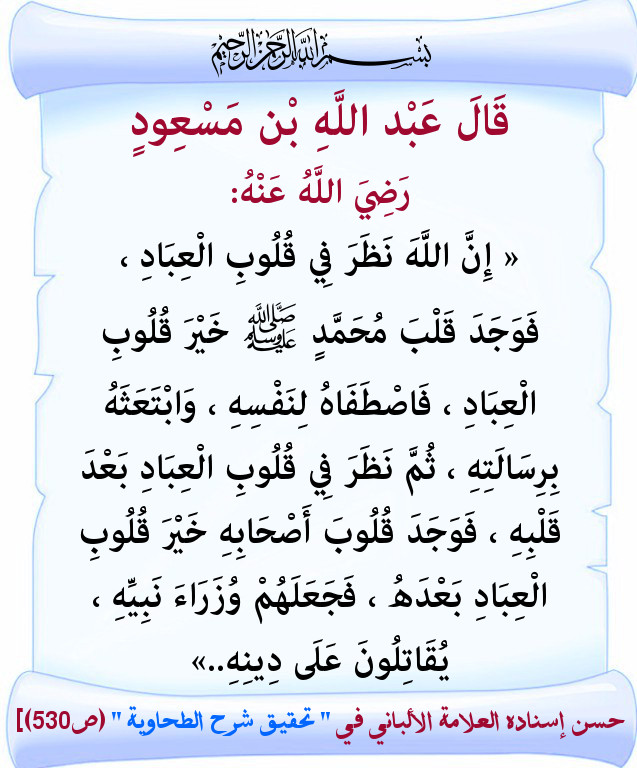 بسم الله الرحمن الرحيم
قَالَ عَبْد اللَّهِ بْن مَسْعِودٍ
رَضِيَ اللَّهُ عَنْهُ:
« إِنَّ اللَّهَ نَظَرَ فِي قُلُوبِ الْعِبَادِ ،
فَوَجَدَ قَلْبَ مُحَمَّدٍ ﷺ خَيْرَ قُلُوبِ
الْعِبَادِ ، فَاصْطَفَاهُ لِنَفْسِهِ ، وَابْتَعَثَهُ
بِرِسَالَتِهِ ، ثُمَّ نَظَرَ فِي قُلُوبِ الْعِبَادِ بَعْدَ
قَلْبِهِ ، فَوَجَدَ قُلُوبَ أَصْحَابِهِ خَيْرَ قُلُوبِ
الْعِبَادِ بَعْدَهُ ، فَجَعَلَهُمْ وُزَرَاءَ نَبِيِّهِ ،
يُقَاتِلُونَ عَلَى دِينِهِ..»
حسن إسناده العلامة الألباني في " تحقيق شرح الطحاوية " (ص530)]